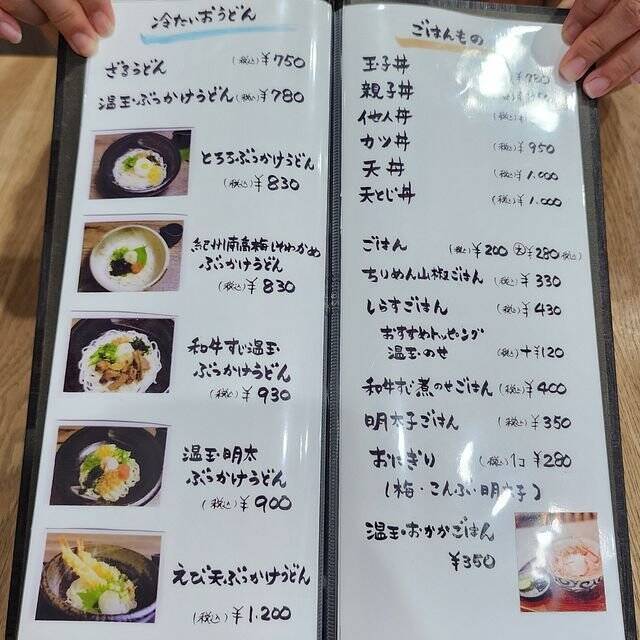 冷たいおうどん
ざるうどん (税込)¥750
温玉・ぶっかけうどん (税込)¥780
とろろぶっかけうどん
(税込)¥830
紀州南高梅しそわかめ
ぶっかけうどん
(税込)¥830
和牛すじ温玉
ぶっかけうどん
(税込)¥930
温玉・明太
ぶっかけうどん
(税込)¥900
えび天ぶっかけうどん
(税込)¥1.200
ごはんもの
玉子丼
親子丼 (税込)
他人丼 (税込)
カツ丼 (税込)¥950
天丼 (税込)¥1.000
天とじ丼 (税込)¥1.000
ごはん (税込)¥200 大¥280(税込)
ちりめん山椒ごはん (税込)¥330
しらすごはん (税込)¥430
おすすめトッピング
温玉のせ (税込)+¥120
和牛すじ煮のせごはん (税込)¥400
明太子ごはん (税込)¥350
おにぎり (税込)1コ¥280
(梅・こんぶ・明太子)
温玉・おかかごはん
¥350